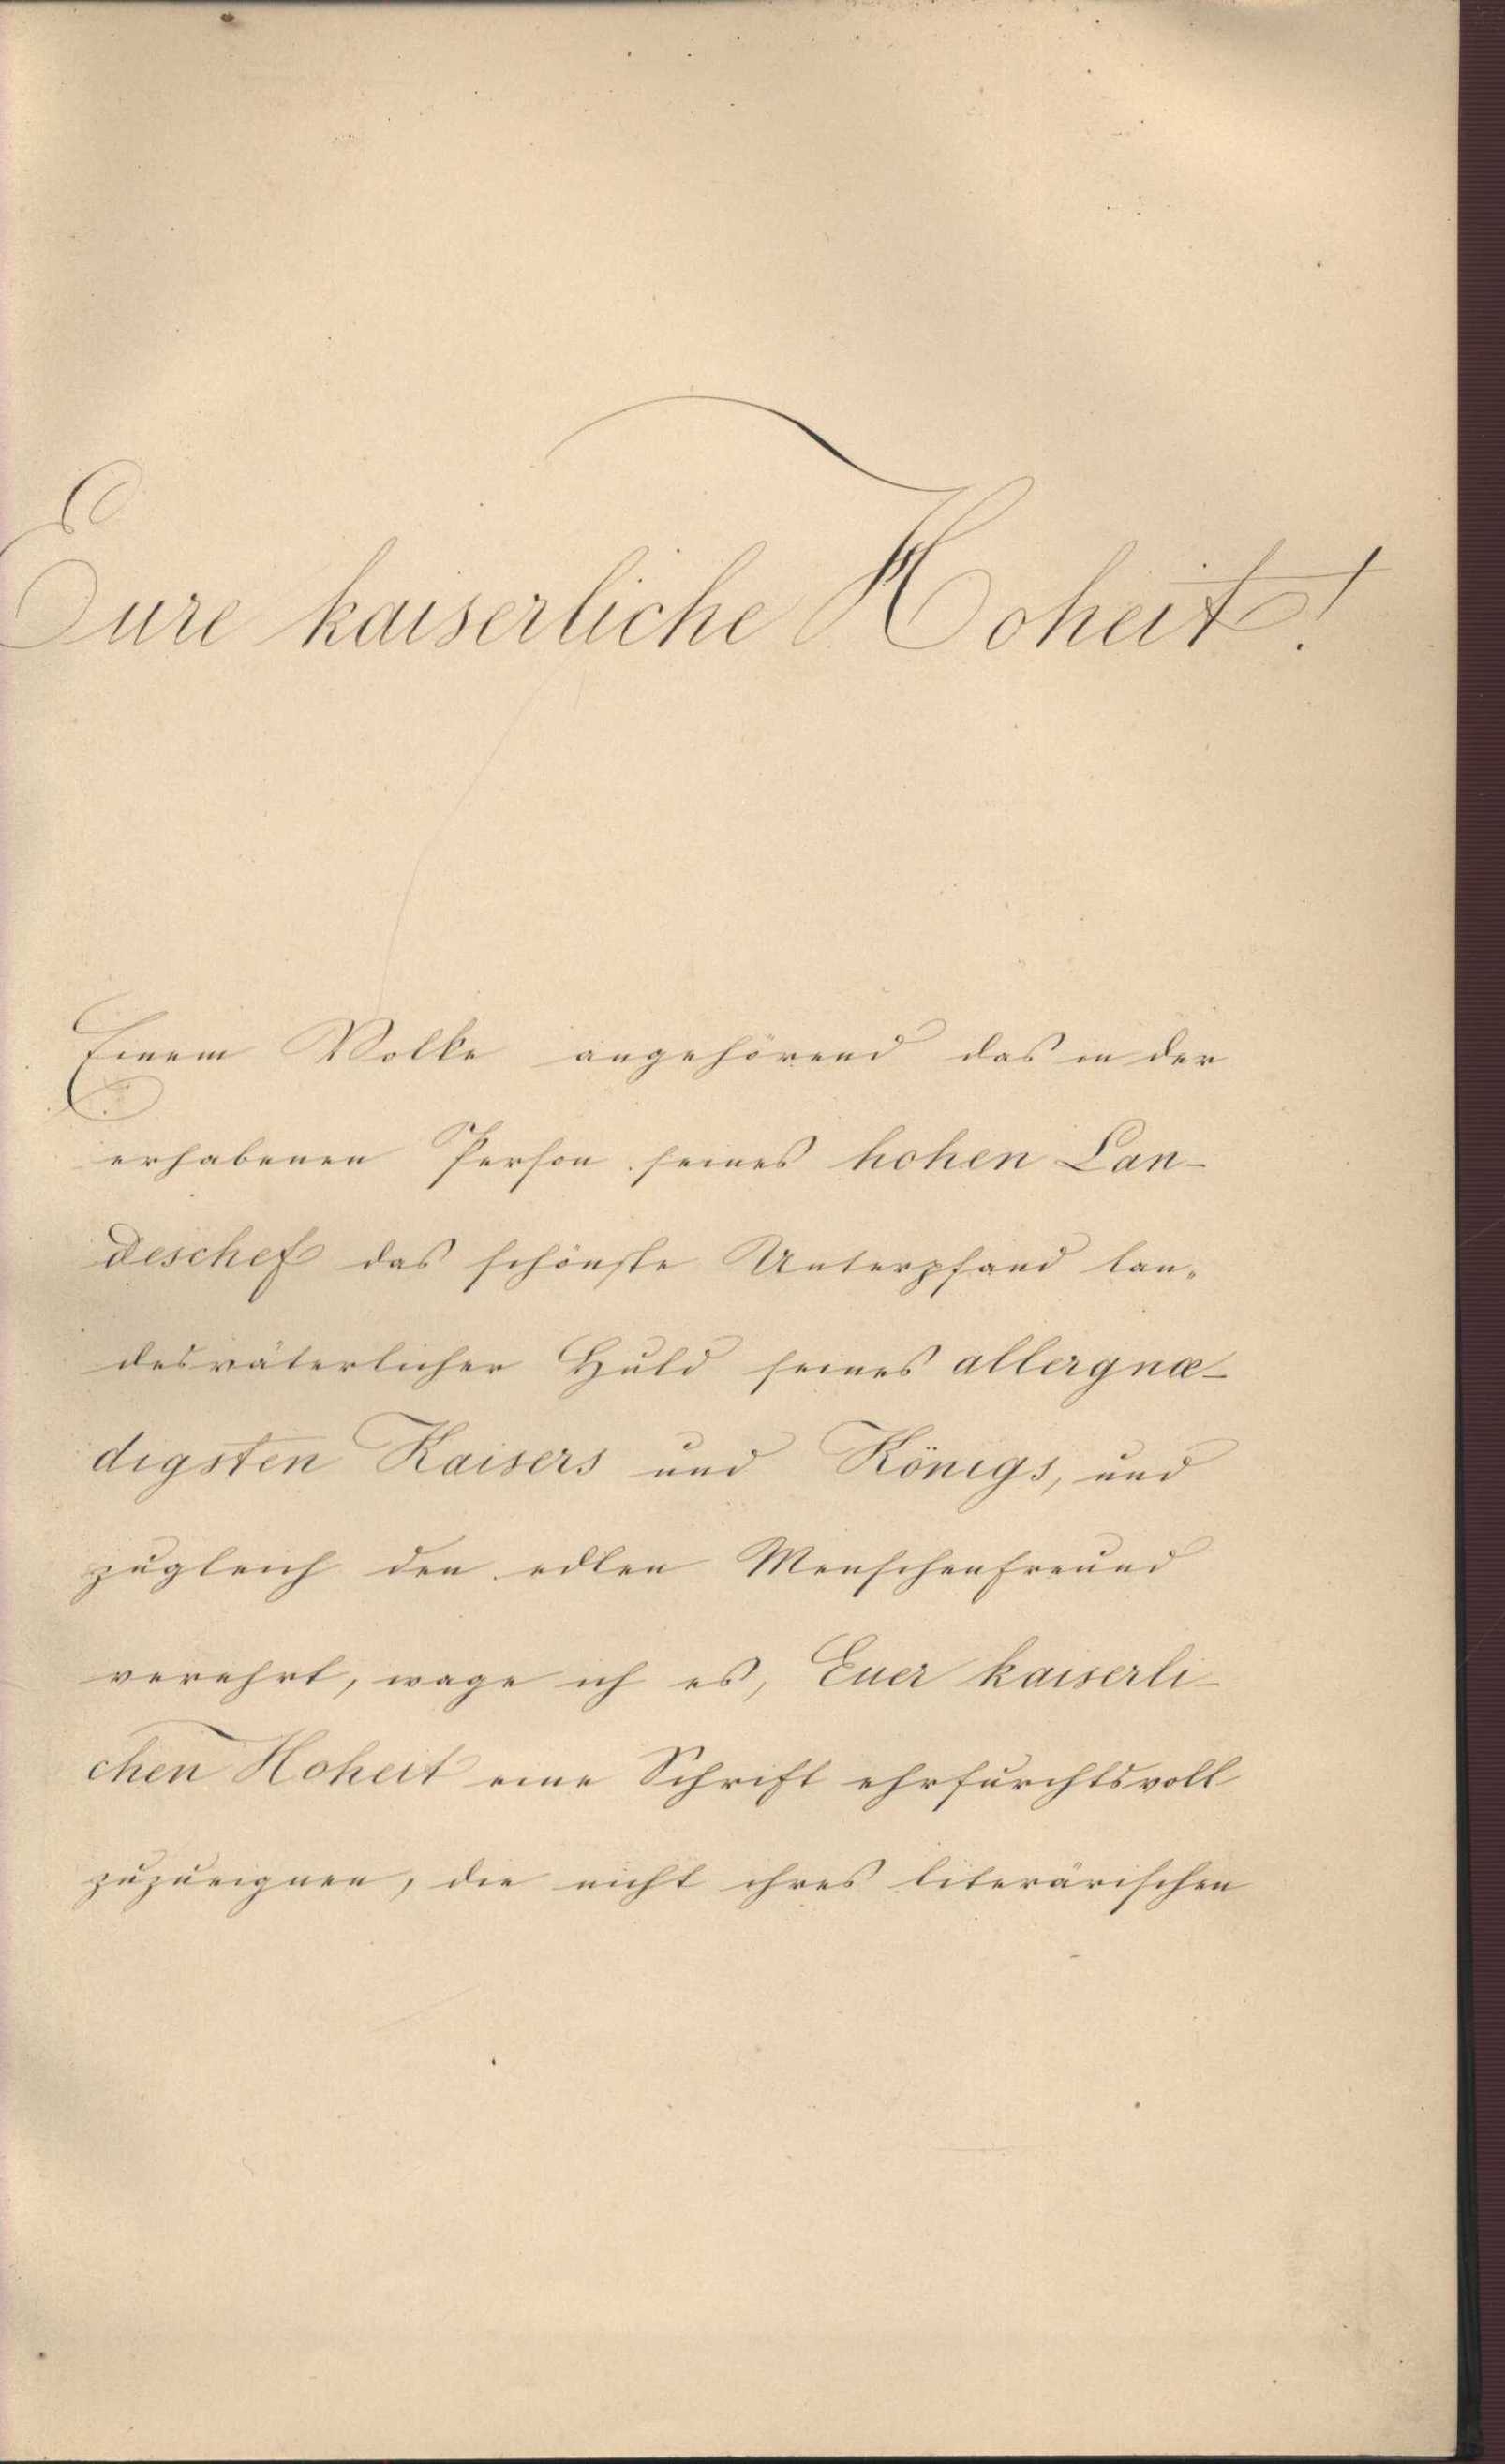 Eure kaiserliche Hoheit!
Einem Volke angehörend das in der
erhabenen Person seines hohen Lan-
deschef das schönste Unterpfand lan-
desväterlicher Huld seines allergnæ-
digsten Kaisers und Königs, und
zugleich den edlen Menschenfreund
verehrt, wage ich es, Euer kaiserli-
chen Hoheit eine Schrift ehrfurchtsvoll
zuzueignen, die nicht ihres literärischen